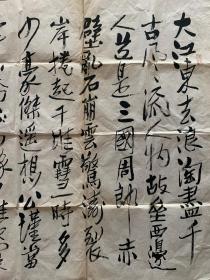 大江東去浪淘盡千
古風流人物故壘西邊
人道是三國周郎赤
壁亂石崩雲驚濤裂
岸捲起千堆雪一時多
少豪傑遙想公瑾當